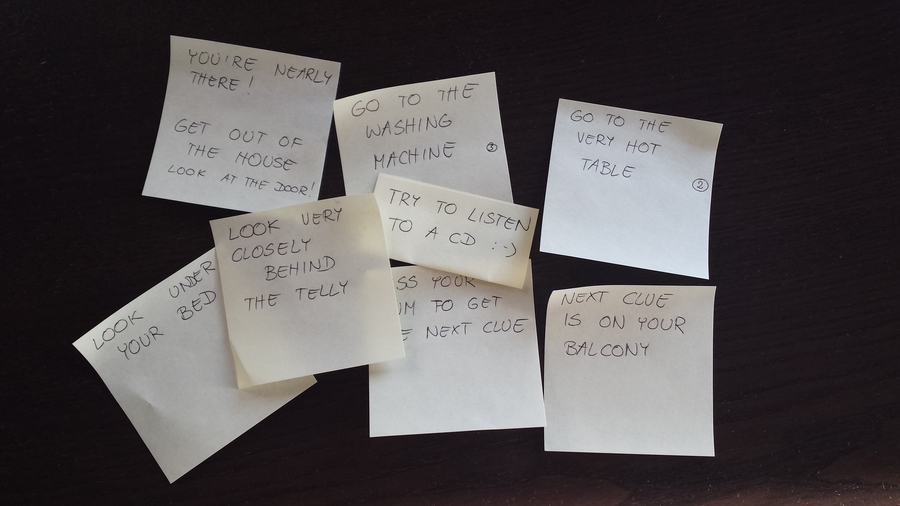 YOU'RE NEARLY
THERE!
GET OUT OF
THE HOUSE
LOOK AT THE DOOR!
GO TO THE
WASHING
MACHINE 3
GO TO THE
VERY HOT
TABLE
2
TRY TO LISTEN
TO A CD :-)
LOOK VERY
CLOSELY
BEHIND
THE TELLY
LOOK UNDER
YOUR BED
YOUR
TO GET
NEXT CLUE
NEXT CLUE
IS ON YOUR
BALCONY